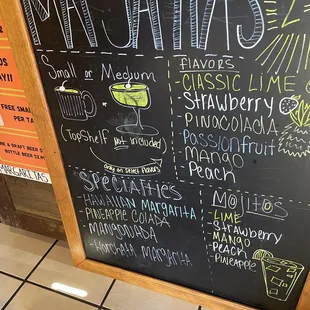 MARGARITAS
Small or Medium
(TopShelf not included)
only on select flavors
FLAVORS
CLASSIC LIME
Strawberry
PINACOLADA
PASSIONFRUIT
MANGO
PEACH
SPECIALTIES
- HAWAIIAN MARGARITA
- PINEAPPLE COLADA
- MANGONADA
- HORCHATA MARGARITA
MOJITOS
- LIME
- Strawberry
- MANGO
- PEACH
- PINEAPPLE
FREE
& DRAFT BEER
BOTTLE BEER
MARGARITAS